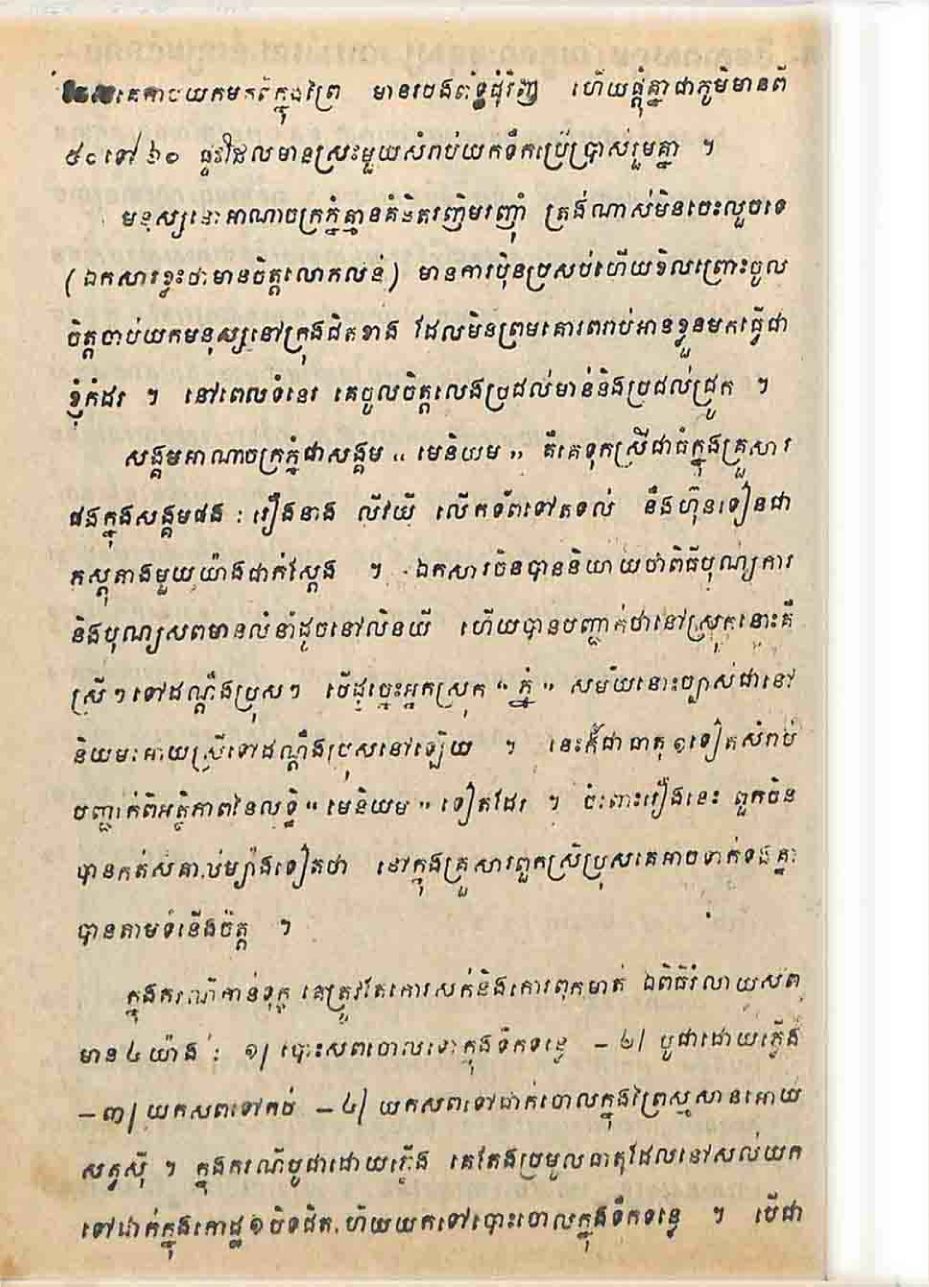 គេកាប់យកមកពីក្នុងព្រៃ មានរបងព័ទ្ធជុំវិញ ហើយផ្តុំគ្នាជាភូមិមានពី
៥០ទៅ៦០ ផ្ទះដែលមានស្រះមួយសំរាប់យកទឹកប្រើប្រាស់រួមគ្នា ។
មនុស្សនៅអាណាចក្រភ្នំគ្មានគំនិតវៀចវេរញ៉ាំ ត្រង់ណាស់មិនចេះលួចទេ
(ឯកសារខ្លះថាមានចិត្តលោភលន់) មានការប៉ិនប្រសប់ហើយខិលព្រោះចូល
ចិត្តចាប់យកមនុស្សនៅក្រុងជិតខាង ដែលមិនព្រមគោរពរាប់អានខ្លួនមកធ្វើជា
ខ្ញុំកំដរ ។ នៅពេលទំនេរ គេចូលចិត្តលេងប្រជល់មាន់និងប្រជល់ជ្រូក ។
សង្គមអាណាចក្រភ្នំជាសង្គម “ មេនិយម ” គឺគេទុកស្រីជាធំក្នុងគ្រួសារ
ផងក្នុងសង្គមផង : រឿងនាង លីវយី លើកទ័ពទៅតទល់ នឹងហ៊ុនទៀនជា
ភស្តុតាងមួយយ៉ាងជាក់ស្តែង ។ ឯកសារចិនបាននិយាយថាពិធីបុណ្យការ
និងបុណ្យសពមានលំនាំដូចនៅលិនយី ហើយបានបញ្ជាក់ថានៅស្រុកនោះគឺ
ស្រីៗទៅដណ្តឹងប្រុសៗ បើដូច្នេះអ្នកស្រុក “ ភ្នំ ” សម័យនោះច្បាស់ជានៅ
និយមអោយស្រីទៅដណ្តឹងប្រុសនៅឡើយ ។ នេះក៏ជាធាតុ១ទៀតសំរាប់
បញ្ជាក់ពីអត្ថិភាពនៃលទ្ធិ “ មេនិយម ” ទៀតដែរ ។ ចំពោះរឿងនេះ ពួកចិន
បានកត់សំគាល់ម្យ៉ាងទៀតថា នៅក្នុងគ្រួសារពួកស្រីប្រុសគេអាចទាក់ទងគ្នា
បានតាមទំនើងចិត្ត ។
ក្នុងករណីកាន់ទុក្ខ គេត្រូវតែកោរសក់និងកោរពុកមាត់ ឯពិធីរំលាយសព
មាន៤យ៉ាង : ១/ បោះសពចោលទៅក្នុងទឹកទន្លេ – ២/ បូជាដោយភ្លើង
– ៣/ យកសពទៅកប់ – ៤/ យកសពទៅដាក់ចោលក្នុងព្រៃស្មសានអោយ
សត្វស៊ី ។ ក្នុងករណីបូជាដោយភ្លើង គេតែងប្រមូលធាតុដែលនៅសល់យក
ទៅដាក់ក្នុងកោដ្ឋ១បិទជិត, ហើយយកទៅបោះចោលក្នុងទឹកទន្លេ ។ បើជា